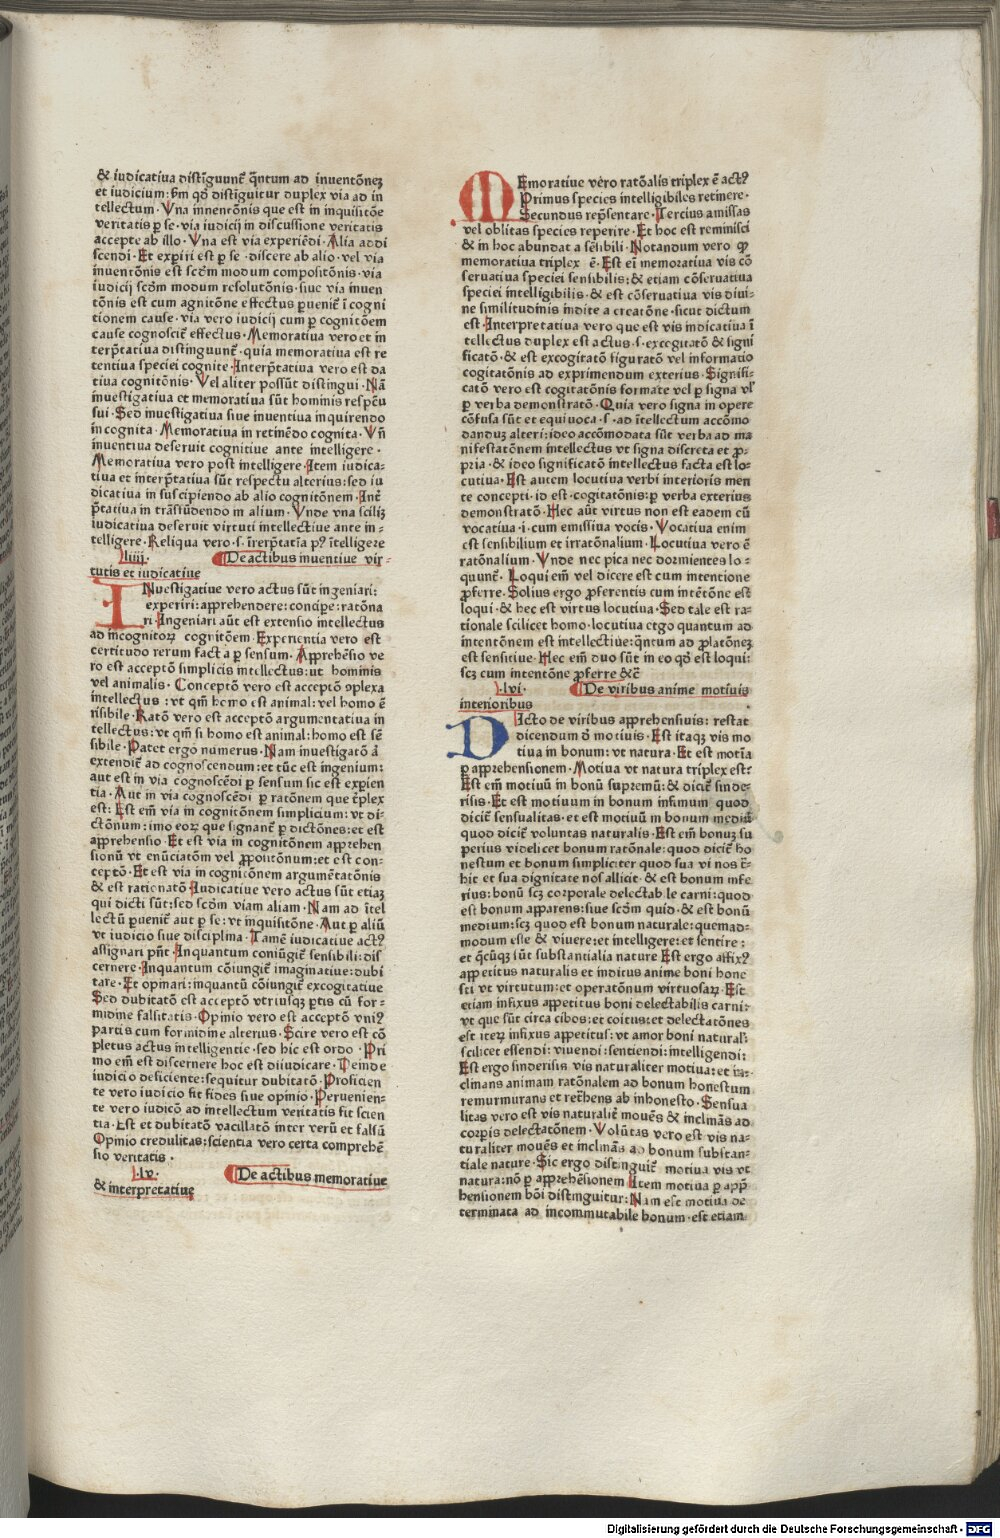 & iudicatiua distīguunt̄ q̄ntum ad inuentōneꝫ
et iudicium: ẜm qd̄ distīguitur duplex via ad in
tellectum · Vna innentōnis que est in inquisitōe
veritatis ꝑ se · via iudicij in discussione veritatis
accepte ab illo · Vna est via experiēdi · Alia addi
scendi · Et exꝑiri est ꝑ se · discere ab alio · vel via
inuentōnis est scd̄m modum compositōnis · via
iudicij scd̄m modum resolutōnis · siue via inuen
tōnis est cum agnitōne effectus ꝑuenit̄ ī cogni
tionem cause · via vero iudicij cum ꝑ cognitōem
cause cognoscit̄ effectus · Memoratiua vero et in
terp̄tatiua distinguunt̄ · quia memoratiua est re
tentiua speciei cognite · Interp̄tatiua vero est da
tiua cognitōnis · Vel aliter possūt distingui · Nā
inuestigatiua et memoratiua sūt hominis respc̄u
sui · Sed inuestigatiua siue inuentiua inquirendo
incognita · Memoratiua in retinēdo cognita · Vn̄
inuentiua deseruit cognitiue ante intelligere ·
Memoratiua vero post intelligere · Item iudica-
tiua et interp̄tatiua sūt respectu alterius: sed iu
dicatiua in suscipiendo ab alio cognitōnem · Int̄
p̄tatiua in trāsfūdendo in alium · Vnde vna scilicꝫ
iudicatiua deseruit virtuti intellectiue ante in-
telligere · Reliqua vero · s · īterp̄tatīa pꝰ ītelligere
·liiii· De actibus inuentiue vir-
tutis et iudicatiue
INuestigatiue vero actus sūt ingeniari:
experiri: apprehendere: concipe: ratōna
ri · Ingeniari aūt est extensio intellectus
ad incognitoꝝ cognitōem · Experientia vero est
certitudo rerum facta ꝑ sensum · Apprehēsio ve
ro est acceptō simplicis intellectus: ut hominis
vel animalis · Conceptō vero est acceptō ꝯplexa
intellectus : vt qm̄ homo est animal: vel homo ē
risibile · Ratō vero est acceptō argumentatiua in
tellectus: vt qm̄ si homo est animal: homo est sē
sibile · Patet ergo numerus · Nam inuestigatō ā
extendit̄ ad cognoscendum: et tūc est ingenium:
aut est in via cognoscēdi ꝑ sensum sic est exꝑien
tia · Aut in via cognoscēdi ꝑ ratōnem que t̄plex
est: Est em̄ via in cognitōnem simplicium: vt di-
ctōnum: imo eoꝝ que signant̄ ꝑ dictōnes: et est
apprehensio · Et est via in cognitōnem apprehen
sionū vt enūciatōm vel ꝓpositōnum: et est con-
ceptō · Et est via in cognitōnem argumētatōnis
& est ratiōnatō · Iudicatiue vero actus sūt etiaꝫ
qui dicti sūt: sed scd̄m viam aliam · Nam ad ītel
lectū ꝑuenit̄ aut ꝑ se: vt inquisitōne · Aut ꝑ aliū
vt iudicio siue disciplina · Tamē iudicatiue actꝰ
assignari pn̄t · Inquantum coniūgit̄ sensibili: dis
cernere · Inquantum cōiungit̄ imaginatiue: dubi
tare · Et opinari: inquantū cōiungit̄ excogitatiue
Sed dubitatō est acceptō vtriusqꝫ ꝑtis cū for-
midine falsitatis · Opinio vero est acceptō vniꝰ
partis cum formidine alterius · Scire vero est cō
pletus actus intelligentie · sed hic est ordo · Pri
mo em̄ est discernere hoc est diiudicare · Deinde
iudicio deficiente: sequitur dubitatō · Proficien
te vero iudicio fit fides siue opinio · Peruenien-
te vero iudicō ad intellectum veritatis fit scien
tia · Est et dubitatō vacillatō inter verū et falsū
Opinio credulitas: scientia vero certa comprehē
sio veritatis ·
·lv· De actibus memoratiue
& interpretatiue
MEmoratiue vero ratōnalis triplex ē actꝰ
Primus species intelligibiles retinere ·
Secundus rep̄sentare · Tercius amissas
vel oblitas species reperire · Et hoc est reminisci
& in hoc abundat a sēsibili · Notandum vero ꝙ
memoratiua triplex ē · Est ei memoratiua vis cō
seruatiua speciei sensibilis: & etiam cōseruatiua
speciei intelligibilis · & est cōseruatiua vis diui-
ne similitudinis indite a creatōne · sicut dictum
est · Interpretatiua vero que est vis indicatiua ī
tellectus duplex est actus · s · excogitatō & signi
ficatō · & est excogitatō figuratō vel informatio
cogitatōnis ad exprimendum exterius · Signifi-
catō vero est cogitatōnis formate vel ꝑ signa vl̓
ꝑ verba demonstratō · Quia vero signa in opere
cōfusa sūt et equiuoca · s · ad ītellectum accōmo
danduꝫ alteri: ideo accōmodata sūt verba ad ma
nifestatōnem intellectus vt signa discreta et ꝓ-
pria · & ideo significatō intellectus facta est lo-
cutiua · Est autem locutiua verbi interioris men
te concepti · id est · cogitatōnis: ꝑ verba exterius
demonstratō · Hec aūt virtus non est eadem cū
vocatiua · i · cum emissiua vocis · Vocatiua enim
est sensibilium et irratōnalium · Locutiua vero ē
ratōnalium · Vnde nec pica nec dormientes lo-
quunt̄ · Loqui em̄ vel dicere est cum intentione
ꝓferre · Solius ergo ꝓferentis cum intētōne est
loqui · & hec est virtus locutiua · Sed tale est ra-
tionale scilicet homo · locutiua ergo quantum ad
intentōnem est intellectiue: qn̄tum ad ꝓlatōneꝫ
est sensitiue · Hec em̄ duo sūt in eo qd̄ est loqui:
scꝫ cum intentōne ꝓferre &c̄
·lvi· De viribus anime motiuis
interioribus
DIcto de viribus apprehensiuis: restat
dicendum d̄ motiuis · Est itaqꝫ vis mo
tiua in bonum: vt natura · Et est motīa
ꝑ apprehensionem · Motiua vt natura triplex est:
Est em̄ motiuū in bonū supremū: & dicit̄ sinde-
risis · Et est motiuum in bonum infimum quod
dicit̄ sensualitas · et est motiuū in bonum mediū
quod dicit̄ voluntas naturalis · Est em̄ bonuꝫ su
perius videlicet bonum ratōnale: quod dicit̄ ho
nestum et bonum simpliciter quod sua vi nos t̄-
hit et sua dignitate nos allicit · & est bonum infe
rius: bonū scꝫ corporale delectabile carni: quod
est bonum apparens: siue scd̄m quid · & est bonū
medium: scꝫ quod est bonum naturale: quemad-
modum esse & viuere: et intelligere: et sentire :
et q̄cūqꝫ sūt substantialia nature Est ergo affixꝰ
appetitus naturalis et inditus anime boni hone
sti vt virtutum: et operatōnum virtuosaꝝ · Est
etiam infixus appetitus boni delectabilis carni:
vt que sūt circa cibos: et coitus: et delectatōnes
est iteꝝ infixus appetitus: vt amor boni natural̓:
scilicet essendi: viuendi: sentiendi: intelligendi:
Est ergo sinderisis vis naturaliter motiua: et in-
clinans animam ratōnalem ad bonum honestum
remurmurans et retᷓhens ab inhonesto · Sensua
litas vero est vis naturalit̄ mouēs & inclināns ad
corꝑis delectatōnem · Volūtas vero est vis na-
turaliter mouēs et inclināns ad bonum substan-
tiale nature · Sic ergo distinguit̄ motiua vis vt
natura: nō ꝑ apprehēsionem Item motiua ꝑ app̄
hensionem bōi distinguitur: Nam est motiua de
terminata ad incommutabile bonum · est etiam
Digitalisierung gefördert durch die Deutsche Forschungsgemeinschaft · DFG